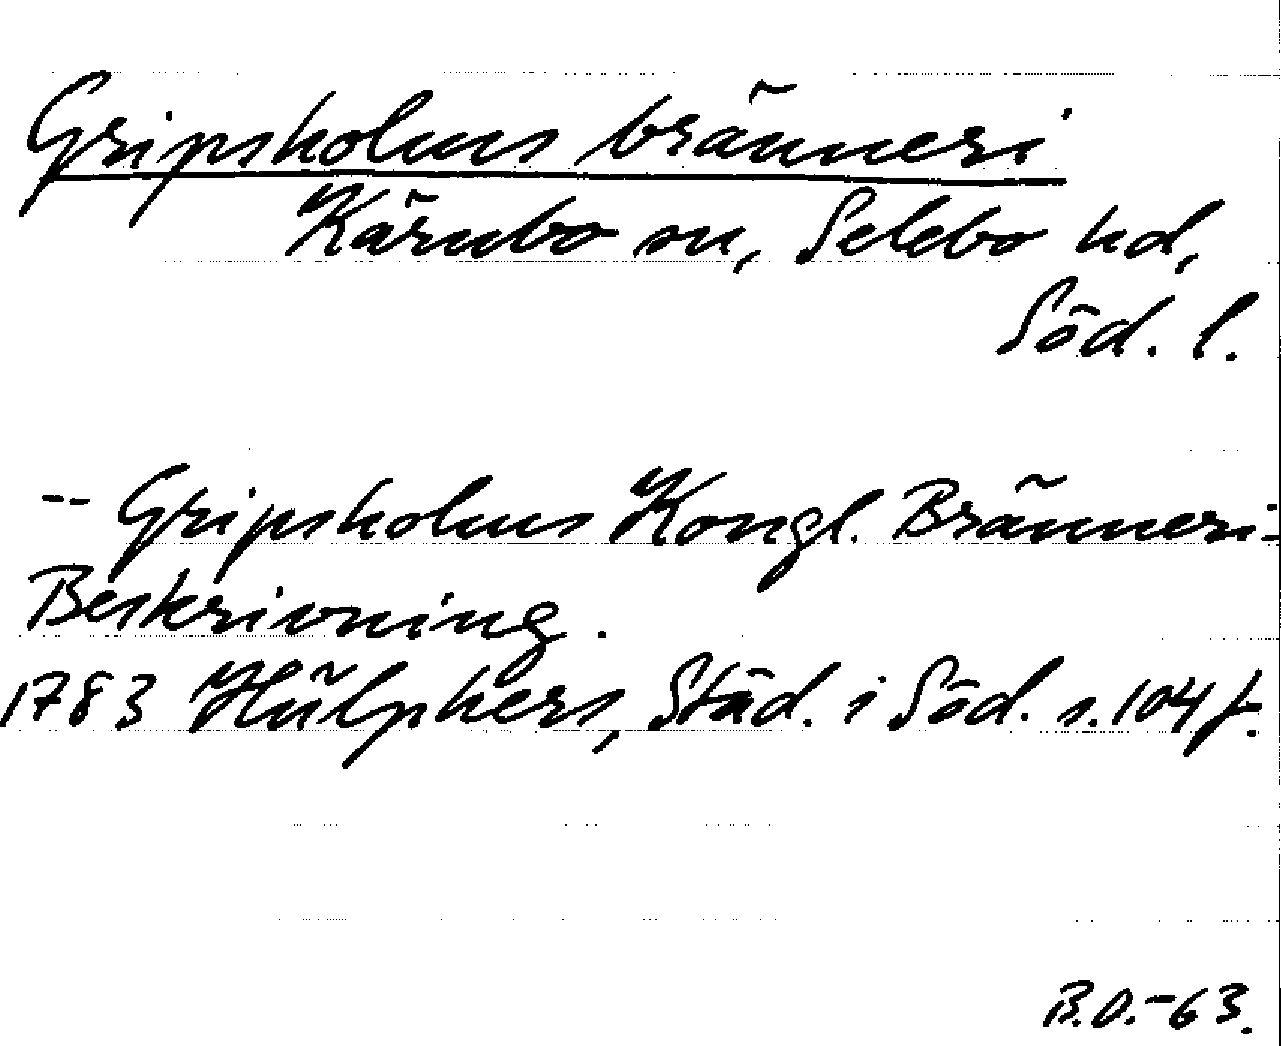 Gripsholms bränneri
Kärnbo sn, Selebo hd,
Söd. l.
-- Gripsholms Kongl. Bränneri-
Beskrivning.
1783 Hülphers, Städ. i Söd. s. 104 f.
B.O.-63.